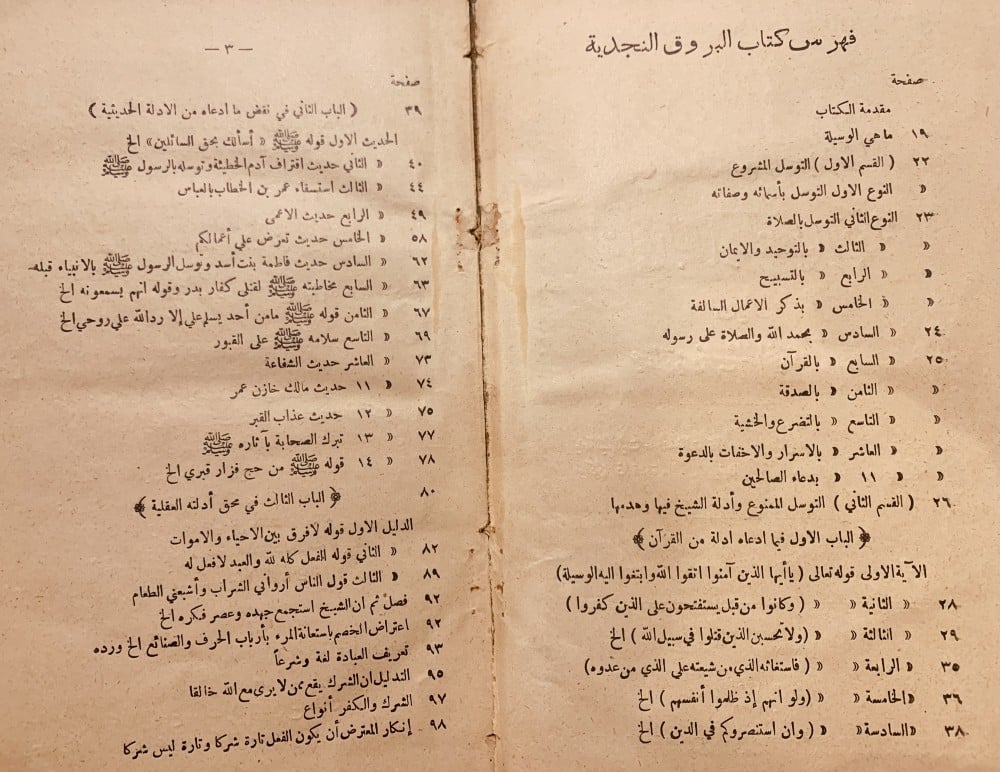 فهرس كتاب البروق النجدية
صفحة
مقدمة الكتاب
١٩ ماهي الوسيلة
٢٢ ( القسم الاول ) التوسل المشروع
« النوع الاول التوسل بأسمائه وصفاته
٢٣ النوع الثاني التوسل بالصلاة
« « الثالث « بالتوحيد والايمان
« « الرابع « بالتسبيح
« « الخامس « بذكر الاعمال السالفة
٢٤ « السادس « بحمد الله والصلاة على رسوله
٢٥ « السابع « بالقرآن
« « الثامن « بالصدقة
« « التاسع « بالتضرع والخشية
« « العاشر « بالاسرار والاخفات بالدعوة
« « ١١ « بدعاء الصالحين
٢٦ ( القسم الثاني ) التوسل الممنوع وأدلة الشيخ فيها وهدمها
﴿ الباب الاول فيما ادعاه ادلة من القرآن ﴾
الآية الاولى قوله تعالى ( يا أيها الذين آمنوا اتقوا الله وابتغوا اليه الوسيلة)
٢٨ « الثانية « « ( وكانوا من قبل يستفتحون على الذين كفروا )
٢٩ « الثالثة « « (ولا تحسبن الذين قتلوا في سبيل الله ) الخ
٣٥ « الرابعة « « ( فاستغاثه الذي من شيعته على الذي من عدوه)
٣٦ «الخامسة « « (ولو انهم إذ ظلموا أنفسهم ) الخ
٣٨ «السادسة« « ( وان استنصروكم في الدين ) الخ
— ٣ —
صفحة
٣٩ ( الباب الثاني في نقض ما ادعاه من الادلة الحديثية )
الحديث الاول قوله ﷺ « أسألك بحق السائلين» الخ
٤٠ « الثاني حديث اقتراف آدم الخطيئة وتوسله بالرسول ﷺ
٤٤ « الثالث استسقاء عمر بن الخطاب بالعباس
٤٩ « الرابع حديث الاعمى
٥٨ « الخامس حديث تعرض علي أعمالكم
٦٢ « السادس حديث فاطمة بنت أسد وتوسل الرسول ﷺ بالانبياء قبله
٦٣ « السابع مخاطبته ﷺ لقتلى كفار بدر وقوله انهم يسمعونه الخ
٦٧ « الثامن قوله ﷺ مامن أحد يسلم علي إلا رد الله علي روحي الخ
٦٩ « التاسع سلامه ﷺ على القبور
٧٣ « العاشر حديث الشفاعة
٧٤ « ١١ حديث مالك خازن عمر
٧٥ « ١٢ حديث عذاب القبر
٧٧ « ١٣ تبرك الصحابة بآثاره ﷺ
٧٨ « ١٤ قوله ﷺ من حج فزار قبري الخ
٨٠ ﴿ الباب الثالث في محق أدلته العقلية ﴾
الدليل الاول قوله لافرق بين الاحياء والاموات
٨٢ « الثاني قوله الفعل كله لله والعبد لافعل له
٨٩ « الثالث قول الناس أرواني الشراب وأشبعني الطعام
٩٢ فصل ثم ان الشيخ استجمع جهده وعصر فكره الخ
٩٢ اعتراض الخصم باستعانة المرء بأرباب الحرف والصنائع الخ ورده
٩٣ تعريف العبادة لغة وشرعاً
٩٥ التدليل ان الشرك يقع ممن لا يرى مع الله خالقا
٩٧ الشرك والكفر أنواع
٩٨ إنكار المعترض أن يكون الفعل تارة شركا وتارة ليس شركا